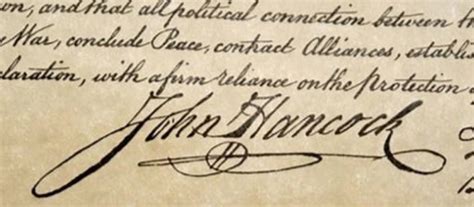 on, and that all political connection between
War, conclude Peace, contract Alliances, establis
claration, with a firm reliance on the Protection
John Hancock